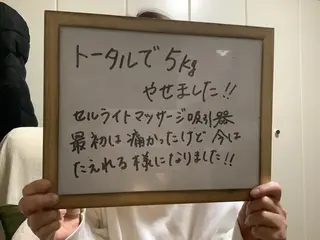 トータルで5kg
やせました!!
セルライトマッサージ吸引器
最初は痛かったけど今は
たえれる様になりました!!